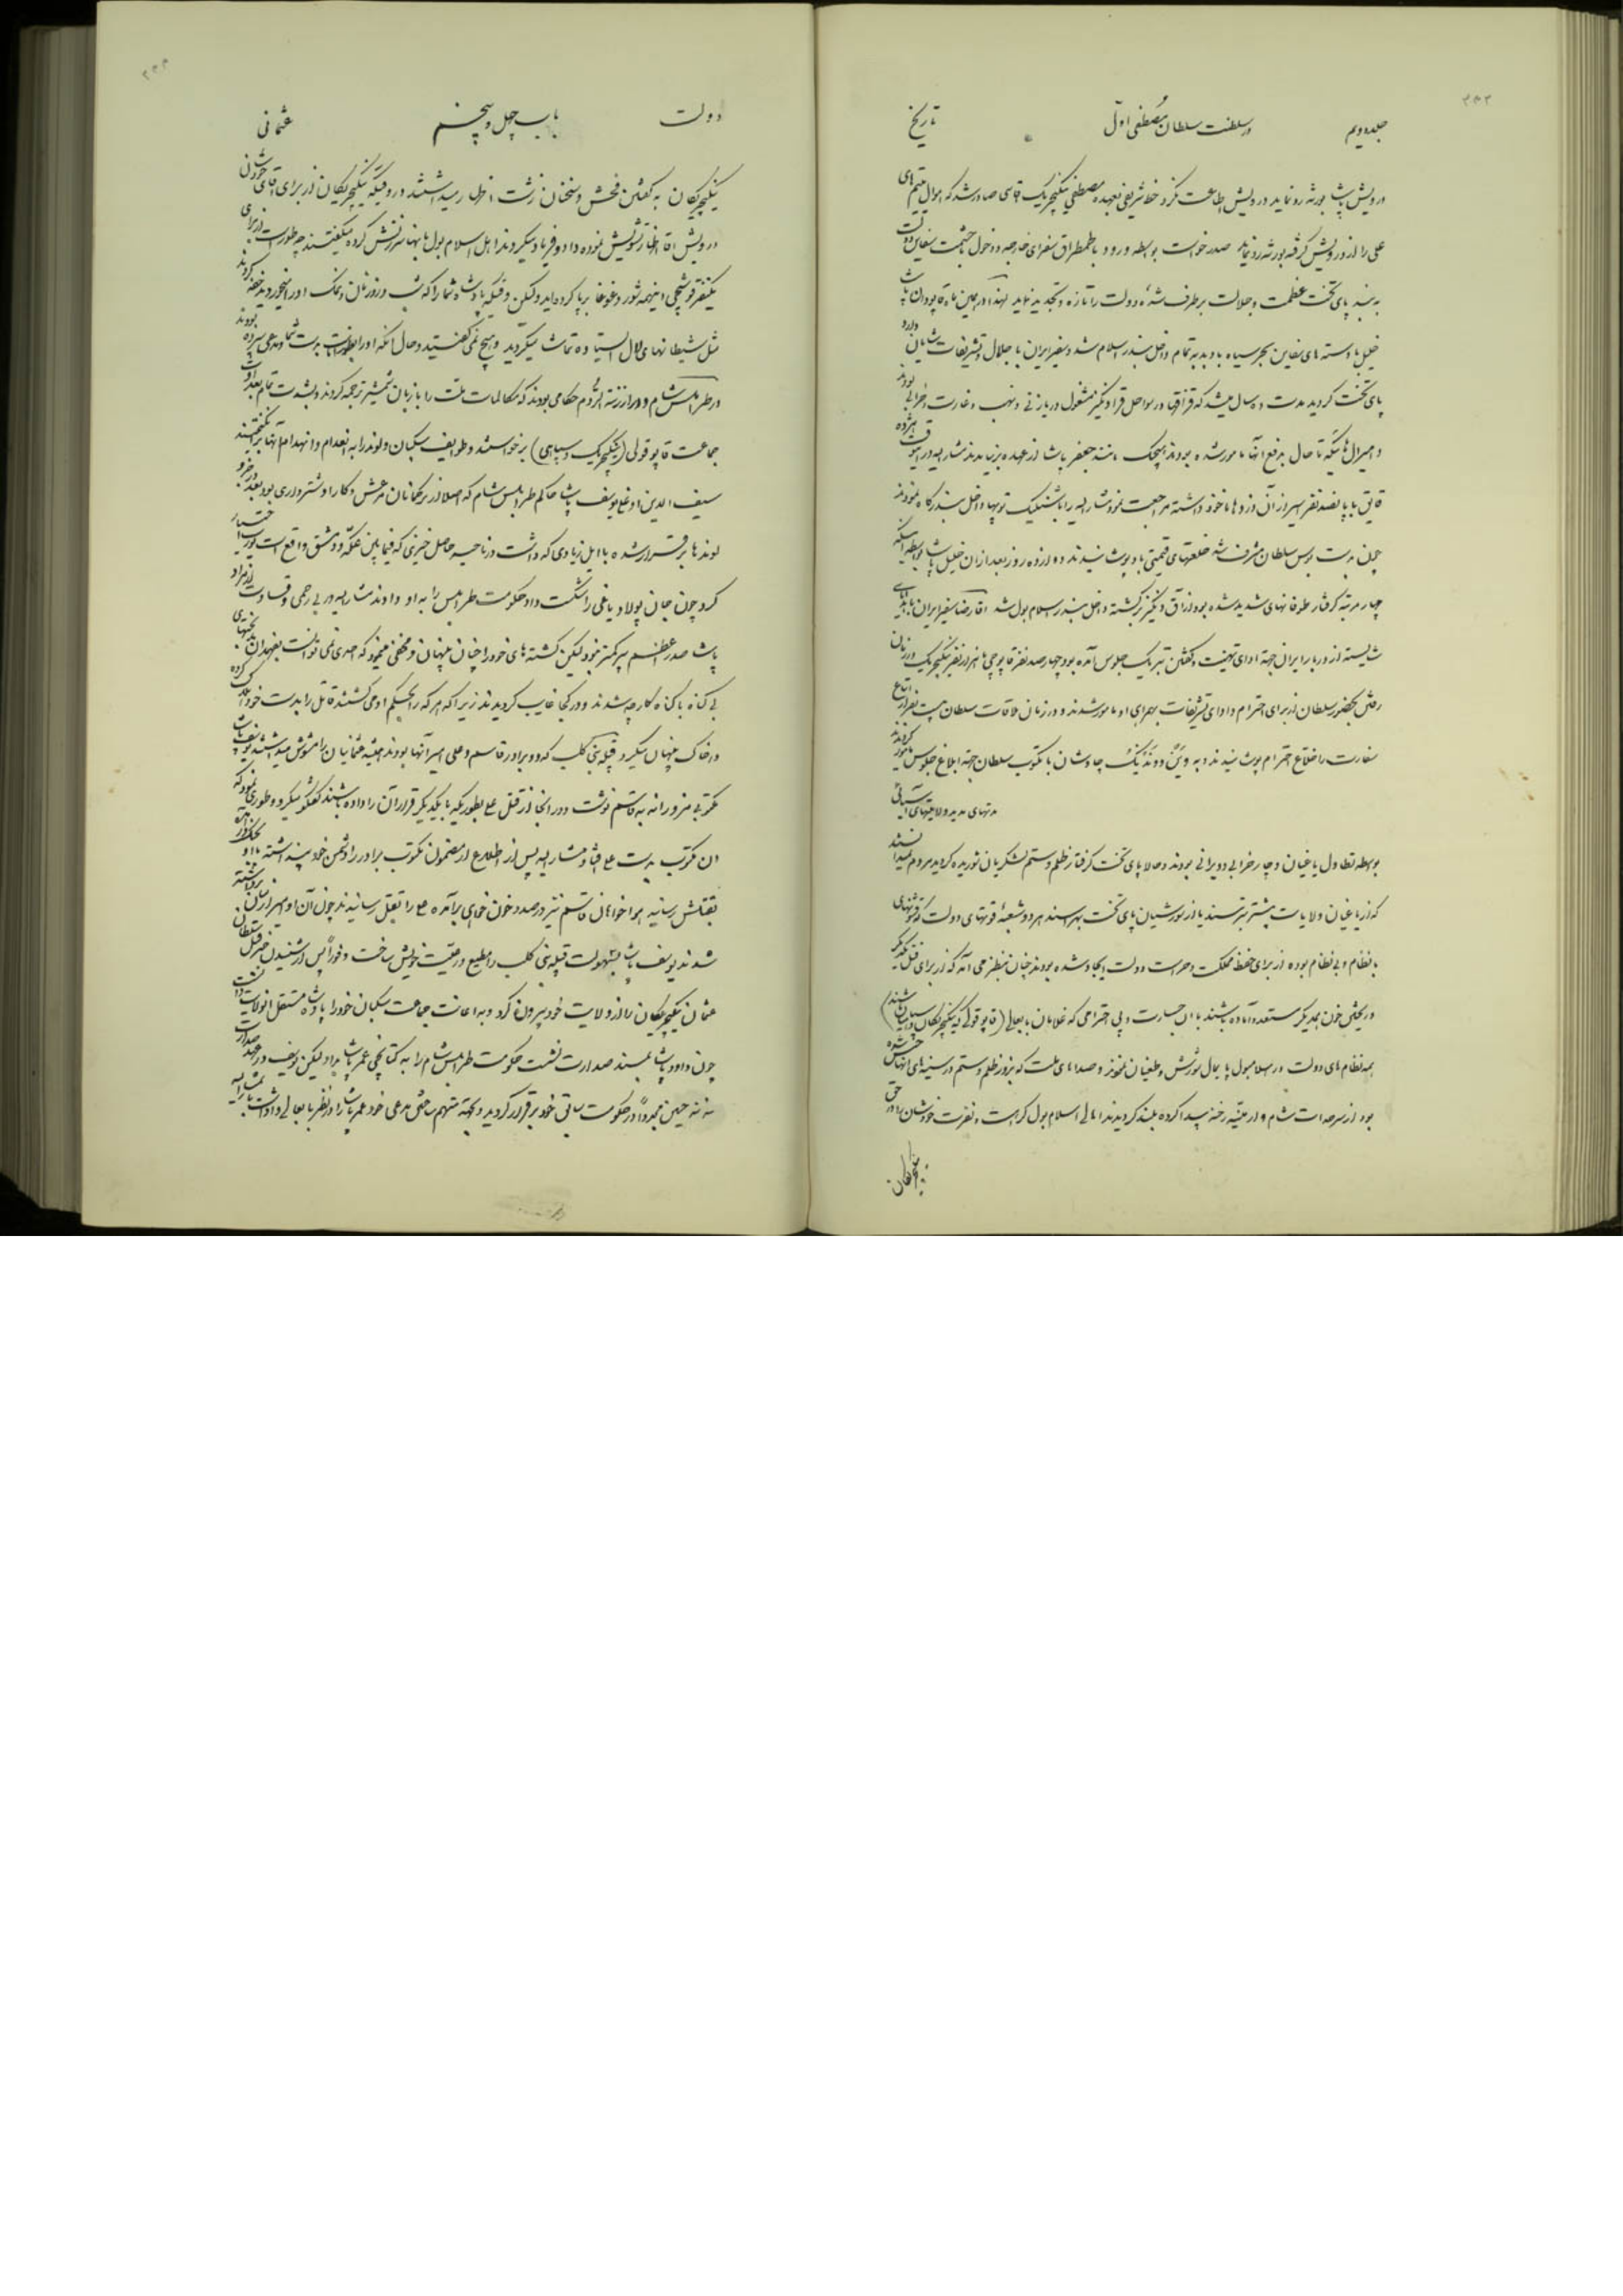 جلد دویم
در سلطنت سلطان مصطفی اوّل
تاریخ
درویش پاشا بورثه رو نماید درویش اطاعت نکرد خط شریفی بعهده مصطفی ینگیچریک آقاسی صادر شد که اموال یتیم های
علی را از درویش گرفته بورثه رد نماید صدر خواست بواسطه ورود با طمطراق سفرای خارجه و دخول با حشمت سفاین دولت
به بندر پای تخت عظمت و جلالت برطرف شده دولت را تازه و تجدید نماید لهذا در همین ماه قاپودان پاشا
خلیل با دسته های سفاین بحر سیاه با دبدبه تمام داخل بندر اسلامبول شد و سفیر ایران با جلال و تشریفات شایان وارد
پای تخت گردید مدت ده سال میشد که قزاقها در سواحل قرا دنگیز مشغول دریازنی و نهب و غارت و خرابی بودند
و امیرال هائیکه تا حال بدفع آنها مامور شده بودند هیچیک مانند جعفر پاشا از عهده برنیامدند مشارالیه در این وقت هژده
قایق با پانصد نفر اسیر از آن دزدها ماخوذ داشته مراجعت نمود مشارالیه را با شنلیک توپها داخل بندرگاه نمودند
چون بدست بوس سلطان مشرف شد خلعتهای قیمتی باو پوشانیدند دوازده روز بعد از آن خلیل پاشا بواسطه اینکه
چهار مرتبه گرفتار طوفانهای شدید شده بود از آق دنگیز برگشته داخل بندر اسلامبول شد آقا رضا سفیر ایران با هدایای
شایسته از دربار ایران جهة ادای تهنیت و گفتن تبریک جلوس آمده بود چهارصد نفر قاپوچی با هزار نفر ینگیچریک در زمان
رفتن بحضور سلطان از برای احترام و ادای تشریفات بهمراهی او مامور شدند و در زمان ملاقات سلطان بیست نفر از اتباع
سفارت را خلاع احترام پوشانیدند و به وین و وندیک چاوشان با مکتوب سلطان جهة ابلاغ جلوس مامور کردند
مدتهای مدید ولایتهای آسیائی
بواسطه تطاول یاغیان دچار خرابی و ویرانی بودند و حالا پای تخت گرفتار ظلم و ستم لشکریان شوریده گردید مردم نمیدانستند
که از یاغیان ولایات بیشتر بترسند یا از شورشیان پای تخت بهراسند هر دو شعبهٔ قوتهای دولت که قوتهای
با نظام و بی نظام بوده از برای حفظ مملکت و حراست دولت ایجاد شده بودند چنان بنظر می آمد که از برای قتل یکدیگر
و ریختن خون همدیگر مستعد و آماده باشند با این جسارت و بی احترامی که غلامان بابعالی (قاپو قولی که ینگیچریکان و سپاهیان باشند)
همه نظام های دولت در اسلامبول پایمال شورش و طغیان نمودند و صداهای ملت که بزور ظلم و ستم در سینه های آنها حبس شده
بود از سرحدات شام و ارمنیه رخنه پیدا کرده بلند گردیدند اهالی اسلامبول کراهت و نفرت خودشان را در حق
ینگچریکان
دولت
باب چهل و پنجم
عثمانی
ینگیچریکان به گفتن فحش و سخنان زشت اظهار میداشتند در وقتیکه ینگیچریکان از برای آقای خودشان
درویش آقا اظهار تشویش نموده داد و فریاد میکردند اهل اسلامبول بآنها سرزنش کرده میگفتند چه طور است از برای
یکنفر قوشچی اینهمه شور و غوغا برپا کرده اید ولیکن وقتیکه پادشاه شما را که شب و روز نان و نمک او را میخوردید خفه کردند
مثل شیطانهای لال ایستاده تماشا میکردید و هیچ نمی گفتید و حال آنکه او را بطور امانت بدست شما و مدعی سپرده بودند
در طرابلس شام و در ارزنة الروم حکامی بودند که مکالمات ملت را با زبان شمشیر ترجمه کردند و بشدت تمام بعداوت
جماعت قاپو قولی (ینگیچریک و سپاهی) برخواستند و طوایف سکبان و لوند را به انعدام و انهدام آنها برانگیختند
سیف الدین اوغلی یوسف پاشا حاکم طرابلس شام که اصلا از ترکمانان مرعش و کار او شترداری بود بعد در جزو
لوندها برقرار شده با ایل زیادی که داشت در ناحیه حاصل خیزی که فیمابین عکّه و دمشق واقع است یورت اختیار
کرد چون جان پولاد یاغی را شکست داد حکومت طرابلس را به او دادند مشارالیه در بی رحمی و قساوت از مراد
پاشا صدر اعظم پیر کمتر نبود لیکن کشته های خود را چنان پنهان و مخفی مینمود که احدی نمی توانست بفهمد آن بدبختهای
بی گناه یا گناه کار چه شدند و در کجا غایب گردیدند زیرا که هر که را بحکم او می کشتند قاتل را بدست خود هلاک کرده
در خاک پنهان میکرد قبیله بنی کلب که دو برادر قاسم و علی امیر آنها بودند همیشه عثمانیان را مشوش میداشتند یوسف پاشا
مکتوبی مزورانه به قاسم نوشت و در آنجا از قتل علی بطوریکه با یکدیگر قرار آن را داده باشند گفتگو میکرد و طوری نمود که
آن مکتوب بدست علی افتاد مشارالیه پس از اطلاع از مضمون مکتوب برادر را دشمن خود پنداشته با او بجنگ درآمده
بقتلش رسانید هواخواهان قاسم نیز درصدد خون خواهی برآمده علی را بقتل رسانیدند چون آن دو امیر از میان برداشته
شدند یوسف پاشا بسهولت قبیله بنی کلب را مطیع و رعیت خویش ساخت و فوراً پس از شنیدن خبر قتل سلطان
عثمان ینگیچریکان را از ولایت خود بیرون کرد و به اعانت جماعت سکبان خود را پادشاه مستقل آنولایت دانست
چون داود پاشا بمسند صدارت نشست حکومت طرابلس شام را به کتانچی عمر پاشا داد لیکن یوسف در عهد صدارت
مره حسین مجدداً در حکومت سابق خود برقرار گردید و بجهة متهم ساختن مدعی خود عمر پاشا را در نظر بابعالی واداشت تا مشارالیه